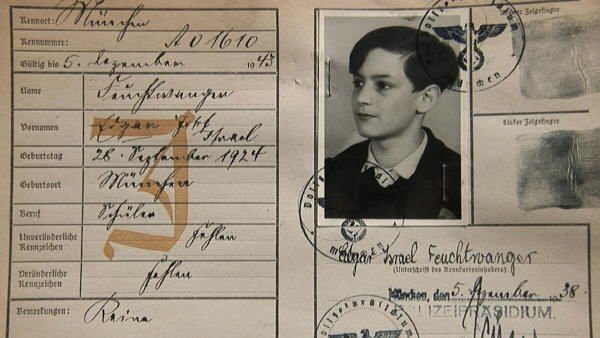 Kennort: München
Kennummer: A 01610
Gültig bis 5. Dezember 1943
Name Feuchtwanger
Vornamen Edgar Josef
Israel
Geburtstag 28. September 1924
Geburtsort München
Beruf Schüler
Unveränderliche Kennzeichen fehlen
Veränderliche Kennzeichen fehlen
Bemerkungen: Keine
J
Rechter Zeigefinger
Linker Zeigefinger
Edgar Israel Feuchtwanger
(Unterschrift des Kennkarteninhabers)
München, den 5. Dezember 1938.
POLIZEIPRÄSIDIUM.